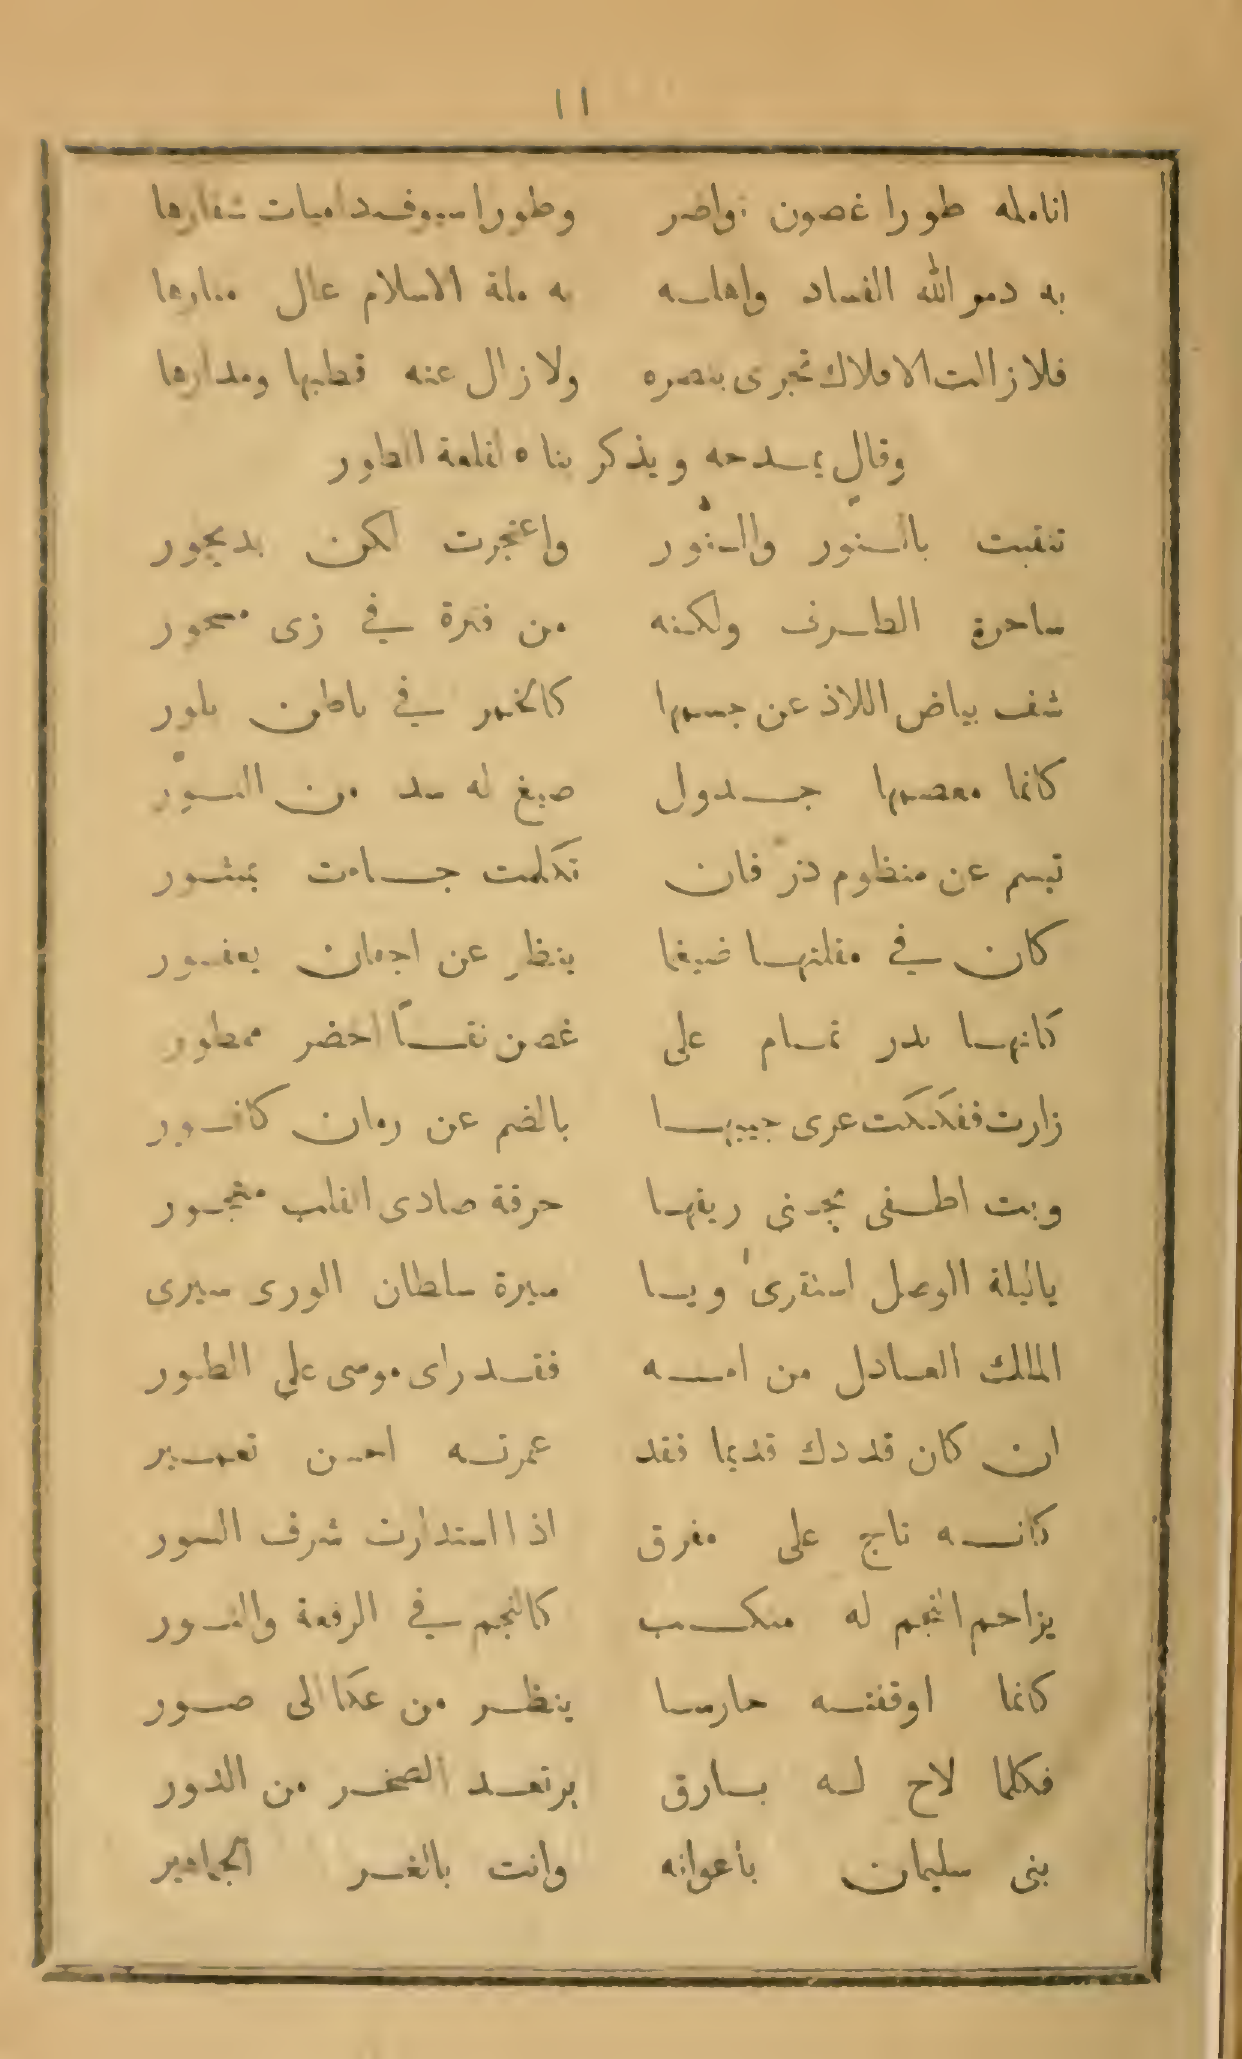 ١١
انامله طورا غصون نواضر وطورا سيوف داميات شفارها
به دمر الله الفساد واهله به ملة الاسلام عال منارها
فلا زالت الافلاك تجرى بنصره ولا زال عنه قطبها ومدارها
وقال يمدحه ويذكر بناه قلعة الطور
تنقبت بالنور والنور واعتجرت لكن بديجور
ساحرة الطرف ولكنه من فترة في زى مسحور
شف بياض اللاذ عن جسمها كالخمر في باطن بلور
كانما معصمها جدول صيغ له سد من السور
تبسم عن منظوم در فان تكلمت جاءت بمنثور
كان في مقلتها ضيغما ينظر عن اجفان يعفور
كانها بدر تمام على غصن نقا اخضر ممطور
زارت ففككت عرى جيبها بالضم عن رمان كافور
وبت اطفى بجنى ريقها حرقة صادى القلب مهجور
ياليلة الوصل استقرى ويا سيرة سلطان الورى سيرى
المالك العادل من امه فقد راى موسى على الطور
ان كان قد دك قديما فقد عمرته احسن تعمير
كانه تاج على مفرق اذا استدارت شرف السور
يزاحم النجم له منكب كالنجم في الرفعة والنور
كانما اوقفته حارسا ينظر من عكا الى صور
فكلما لاح له بارق يرتعد الصخر من الدور
بنى سليمان باعوانه وانت بالغر الجماهير